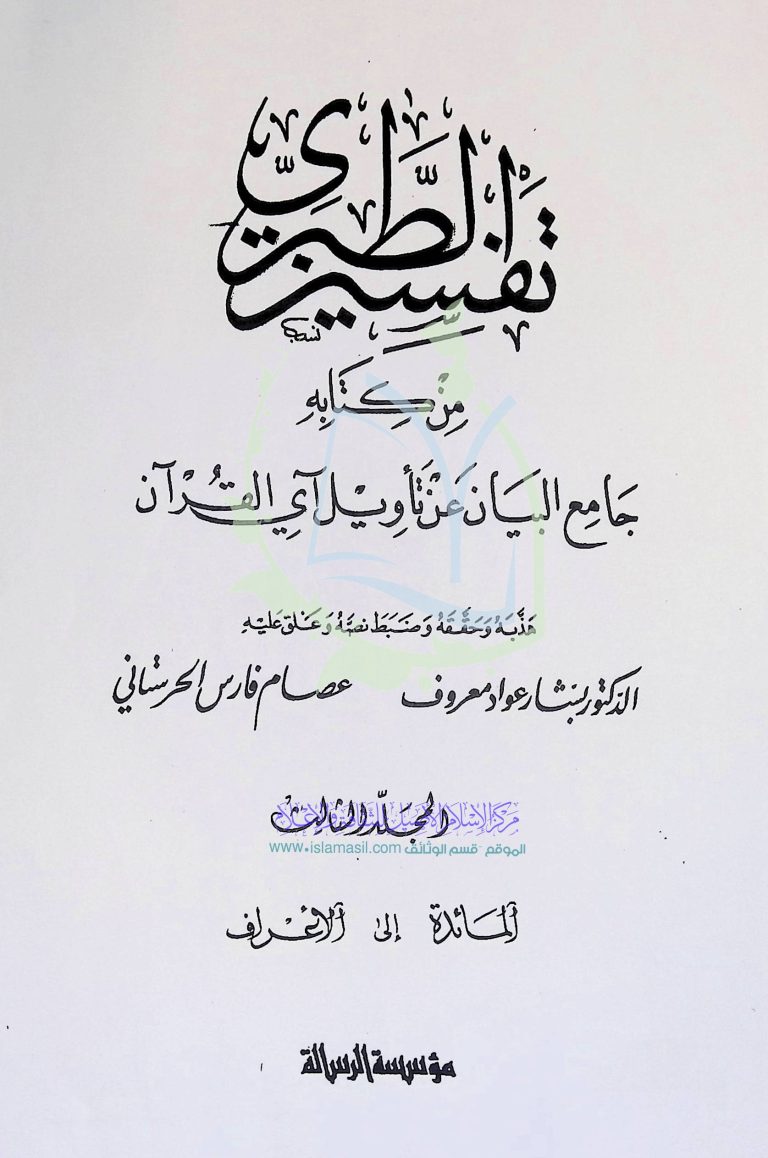 تَفْسِيرُ الطَّبَرِيّ
مِنْ كِتَابِهِ
جَامِعُ البَيَانِ عَنْ تَأوِيلِ آيِ القُرْآنِ
هَذَّبَهُ وَحَقَّقَهُ وَضَبَطَ نصَّهُ وَعَلَّقَ عَلَيْهِ
الدكتور بشار عواد معروف عصام فارس الحرستاني
المجلّد الثالث
مركز الإسلام الأصيل للثقافة والإعلام
الموقع - قسم الوثائق www.islamasil.com
المَائدة إلى الأعْراف
مؤسسة الرسالة